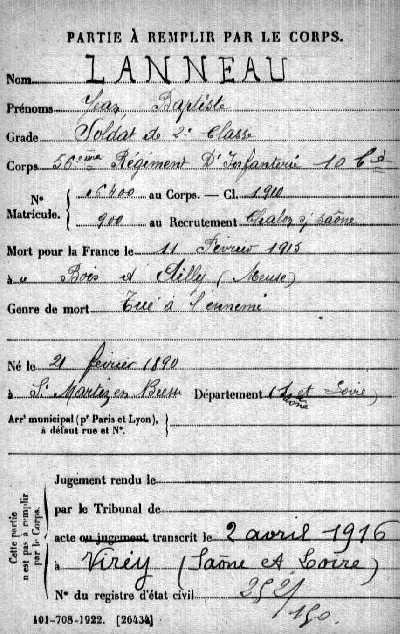 PARTIE À REMPLIR PAR LE CORPS.
Nom LANNEAU
Prénoms Jean Baptiste
Grade Soldat de 2e Classe
Corps 56ème Régiment D'Infanterie 10 Cie
N° Matricule. { 6400 au Corps. — Cl. 1910
900 au Recrutement Chalon s/ Saône
Mort pour la France le 11 Février 1915
à Bois d'Ailly (Meuse)
Genre de mort Tué à l'ennemi
Né le 21 février 1890
à St Martin en Bresse Département Saône et Loire
Arrt municipal (pr Paris et Lyon), à défaut rue et N°. }
Cette partie n'est pas à remplir par le Corps.
Jugement rendu le
par le Tribunal de
acte ou jugement transcrit le 2 avril 1916
à Virey (Saône et Loire)
N° du registre d'état civil 252/150
101-708-1922. [26434]